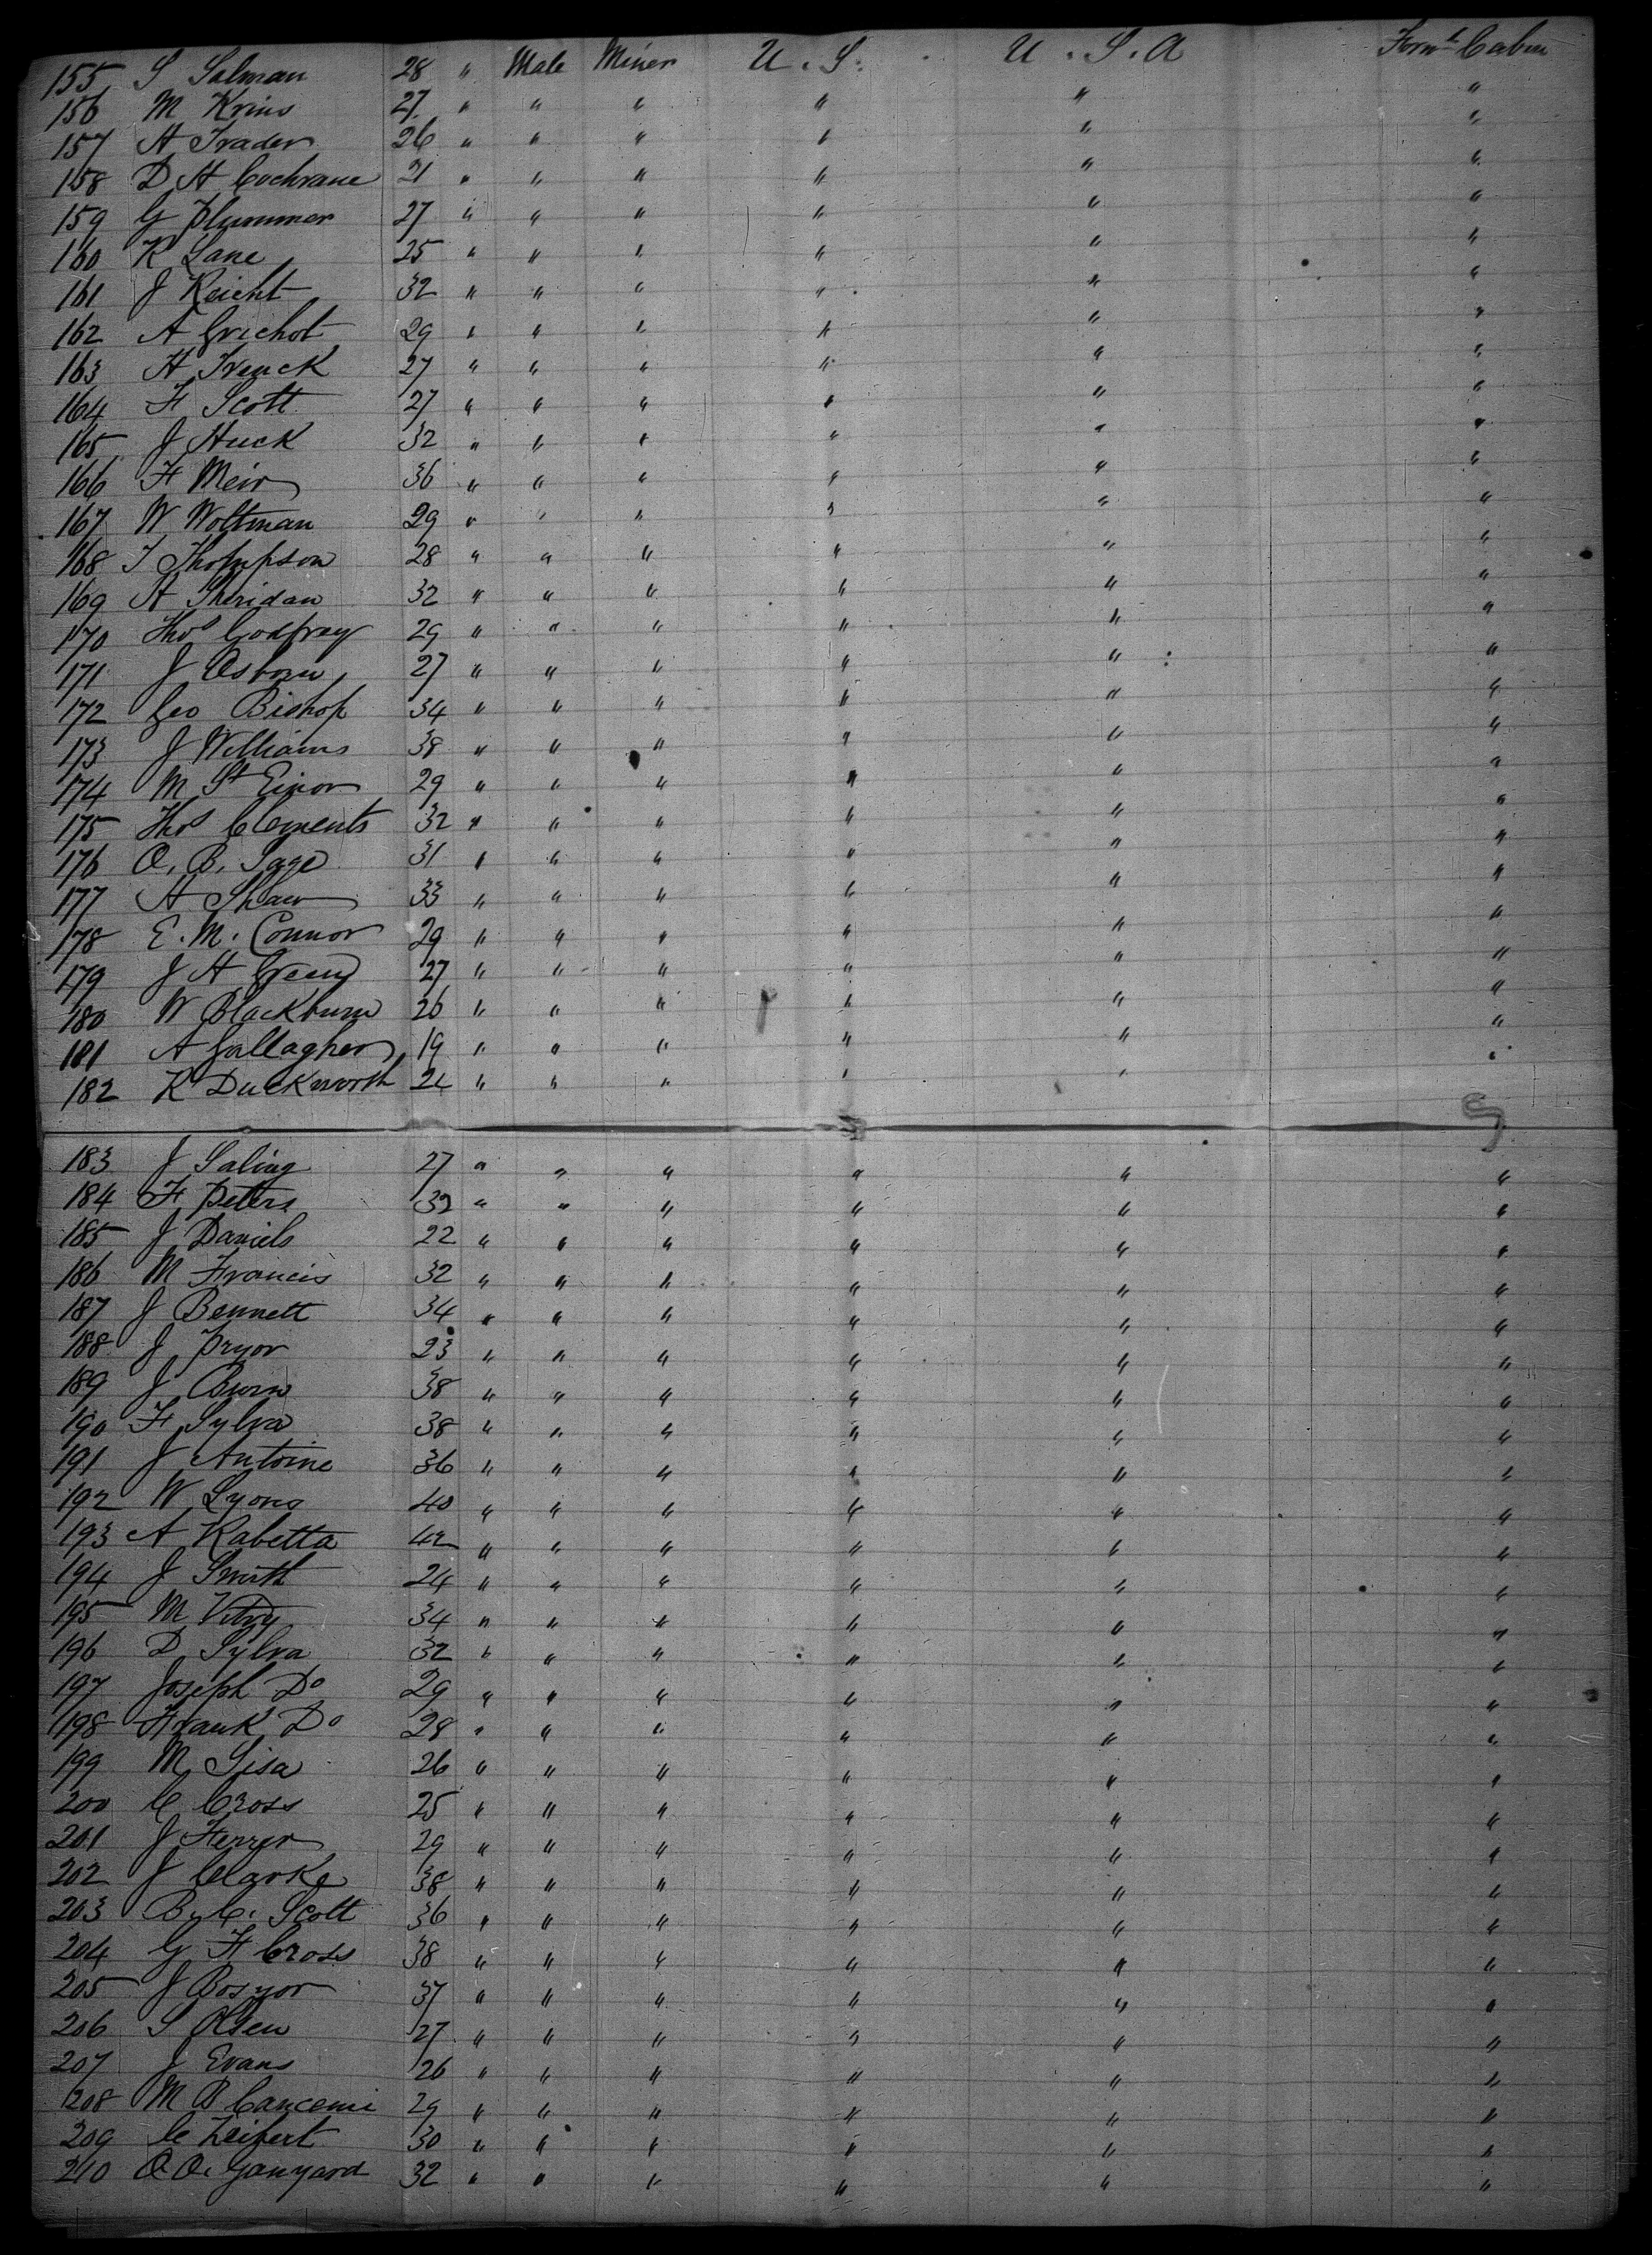 155 S Salman 28 " Male Miner U. S. U. S. A Forwd Cabin
156 M Krins 27 " " " " " "
157 A Trader 26 " " " " " "
158 D H Cochrane 21 " " " " " "
159 G Plummer 27 " " " " " "
160 R Lane 25 " " " " " "
161 J Reicht 32 " " " " " "
162 A Grichot 29 " " " " " "
163 H Trenck 27 " " " " " "
164 F Scott 27 " " " " " "
165 J Huck 32 " " " " " "
166 F Meir 36 " " " " " "
167 W Woltman 29 " " " " " "
168 T Thompson 28 " " " " " "
169 H Sheridan 32 " " " " " "
170 Thos Godfrey 29 " " " " " "
171 J Osborn 27 " " " " " "
172 Geo Bishop 34 " " " " " "
173 J Williams 38 " " " " " "
174 M St 29 " " " " " "
175 Thos Clements 32 " " " " " "
176 O. B. Sage 31 " " " " " "
177 H Shaw 33 " " " " " "
178 E. M. Connor 29 " " " " " "
179 J H Green 27 " " " " " "
180 W Blackburn 26 " " " " " "
181 A Gallagher 19 " " " " " "
182 R Duckworth 24 " " " " " "
183 J Saling 27 " " " " " "
184 F Peters 32 " " " " " "
185 J Daniels 22 " " " " " "
186 M Francis 32 " " " " " "
187 J Bennett 34 " " " " " "
188 J Pryor 23 " " " " " "
189 J Burn 38 " " " " " "
190 F Sylva 38 " " " " " "
191 J Antoine 36 " " " " " "
192 W Lyons 40 " " " " " "
193 A Rabetta 42 " " " " " "
194 J Smith 24 " " " " " "
195 M Vitry 34 " " " " " "
196 D Sylva 32 " " " " " "
197 Joseph Do 29 " " " " " "
198 Frank Do 28 " " " " " "
199 M Sisa 26 " " " " " "
200 C Cross 25 " " " " " "
201 J Ferrer 29 " " " " " "
202 J Clarke 38 " " " " " "
203 B. C. Scott 36 " " " " " "
204 G F Cross 38 " " " " " "
205 J Bosyor 37 " " " " " "
206 S Olsen 27 " " " " " "
207 J Evans 26 " " " " " "
208 M B Cancemi 29 " " " " " "
209 C Zeifert 30 " " " " " "
210 O. O. Ganyard 32 " " " " " "